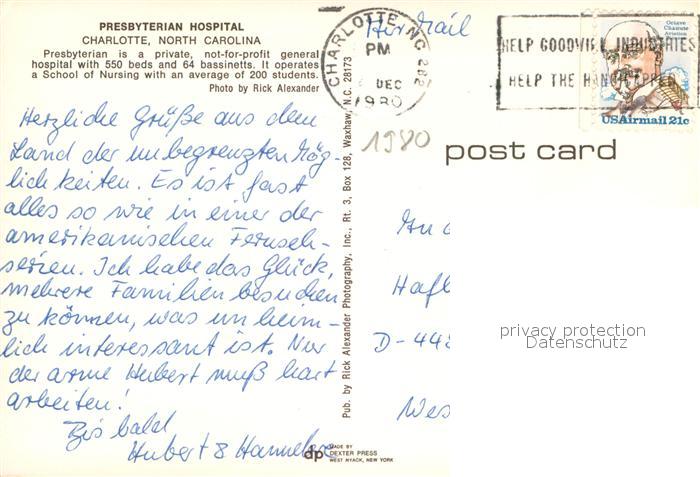 PRESBYTERIAN HOSPITAL
CHARLOTTE, NORTH CAROLINA
Presbyterian is a private, not-for-profit general
hospital with 550 beds and 64 bassinetts. It operates
a School of Nursing with an average of 200 students.
Photo by Rick Alexander
Herzliche Grüße aus dem
Land der unbegrenzten Mög-
lichkeiten. Es ist fast
alles so wie in einer der
amerikanischen Fernseh-
serien. Ich habe das Glück,
mehrere Familien besuchen
zu können, was unheim-
lich interessant ist. Nur
der arme Hubert muß hart
arbeiten!
Bis bald
Hubert & Hannelore
Pub. by Rick Alexander Photography, Inc., Rt. 3, Box 128, Waxhaw, N.C. 28173
dp
MADE BY
DEXTER PRESS
WEST NYACK, NEW YORK
CHARLOTTE, NC 282
PM
DEC
1980
Air Mail
HELP GOODWILL INDUSTRIES
HELP THE HANDICAPPED
Octave
Chanute
Aviation
USAirmail 21c
1980
post card
An
D-448
privacy protection
Datenschutz